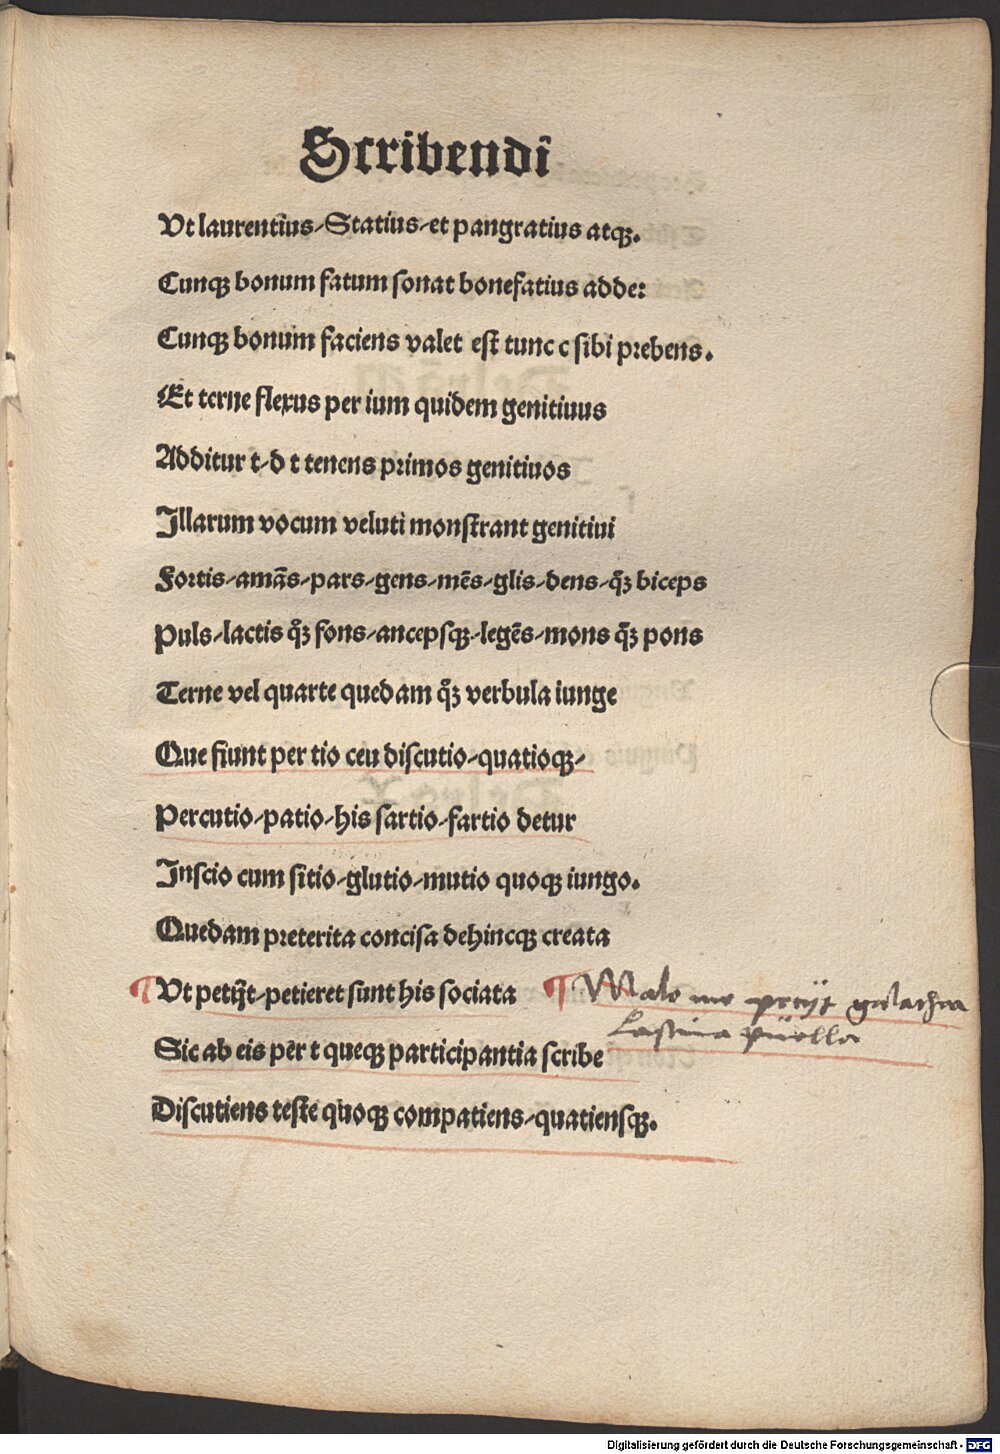 Scribendi
Ut laurentius/Statius/et pangratius atqꝫ.
Cunqꝫ bonum fatum sonat bonefatius adde:
Cunqꝫ bonum faciens valet est tunc c sibi prebens.
Et terne flexus per ium quidem genitiuus
Additur t/d t tenens primos genitiuos
Illarum vocum veluti monstrant genitiui
Fortis/amās/pars/gens/mēs/glis/dens/qꝫ biceps
Puls/lactis qꝫ fons/ancepsqꝫ/legēs/mons qꝫ pons
Terne vel quarte quedam qꝫ verbula iunge
Que fiunt per tio ceu discutio/quatioqꝫ/
Percutio/patio/his sartio/fartio detur
Inscio cum sitio/glutio/mutio quoqꝫ iungo.
Quedam preterita concisa dehincqꝫ creata
¶ Ut petijt/petieret sunt his sociata
¶ Malo me petijt galathea
Lasciua puella
Sic ab eis per t queqꝫ participantia scribe
Discutiens teste quoqꝫ compatiens/quatiensqꝫ.
Digitalisierung gefördert durch die Deutsche Forschungsgemeinschaft - DFG